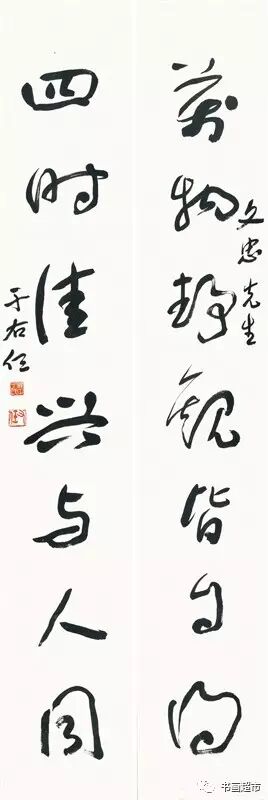 萬物静觀皆自得
文忠先生
四时佳兴与人同
于右任
书画超市